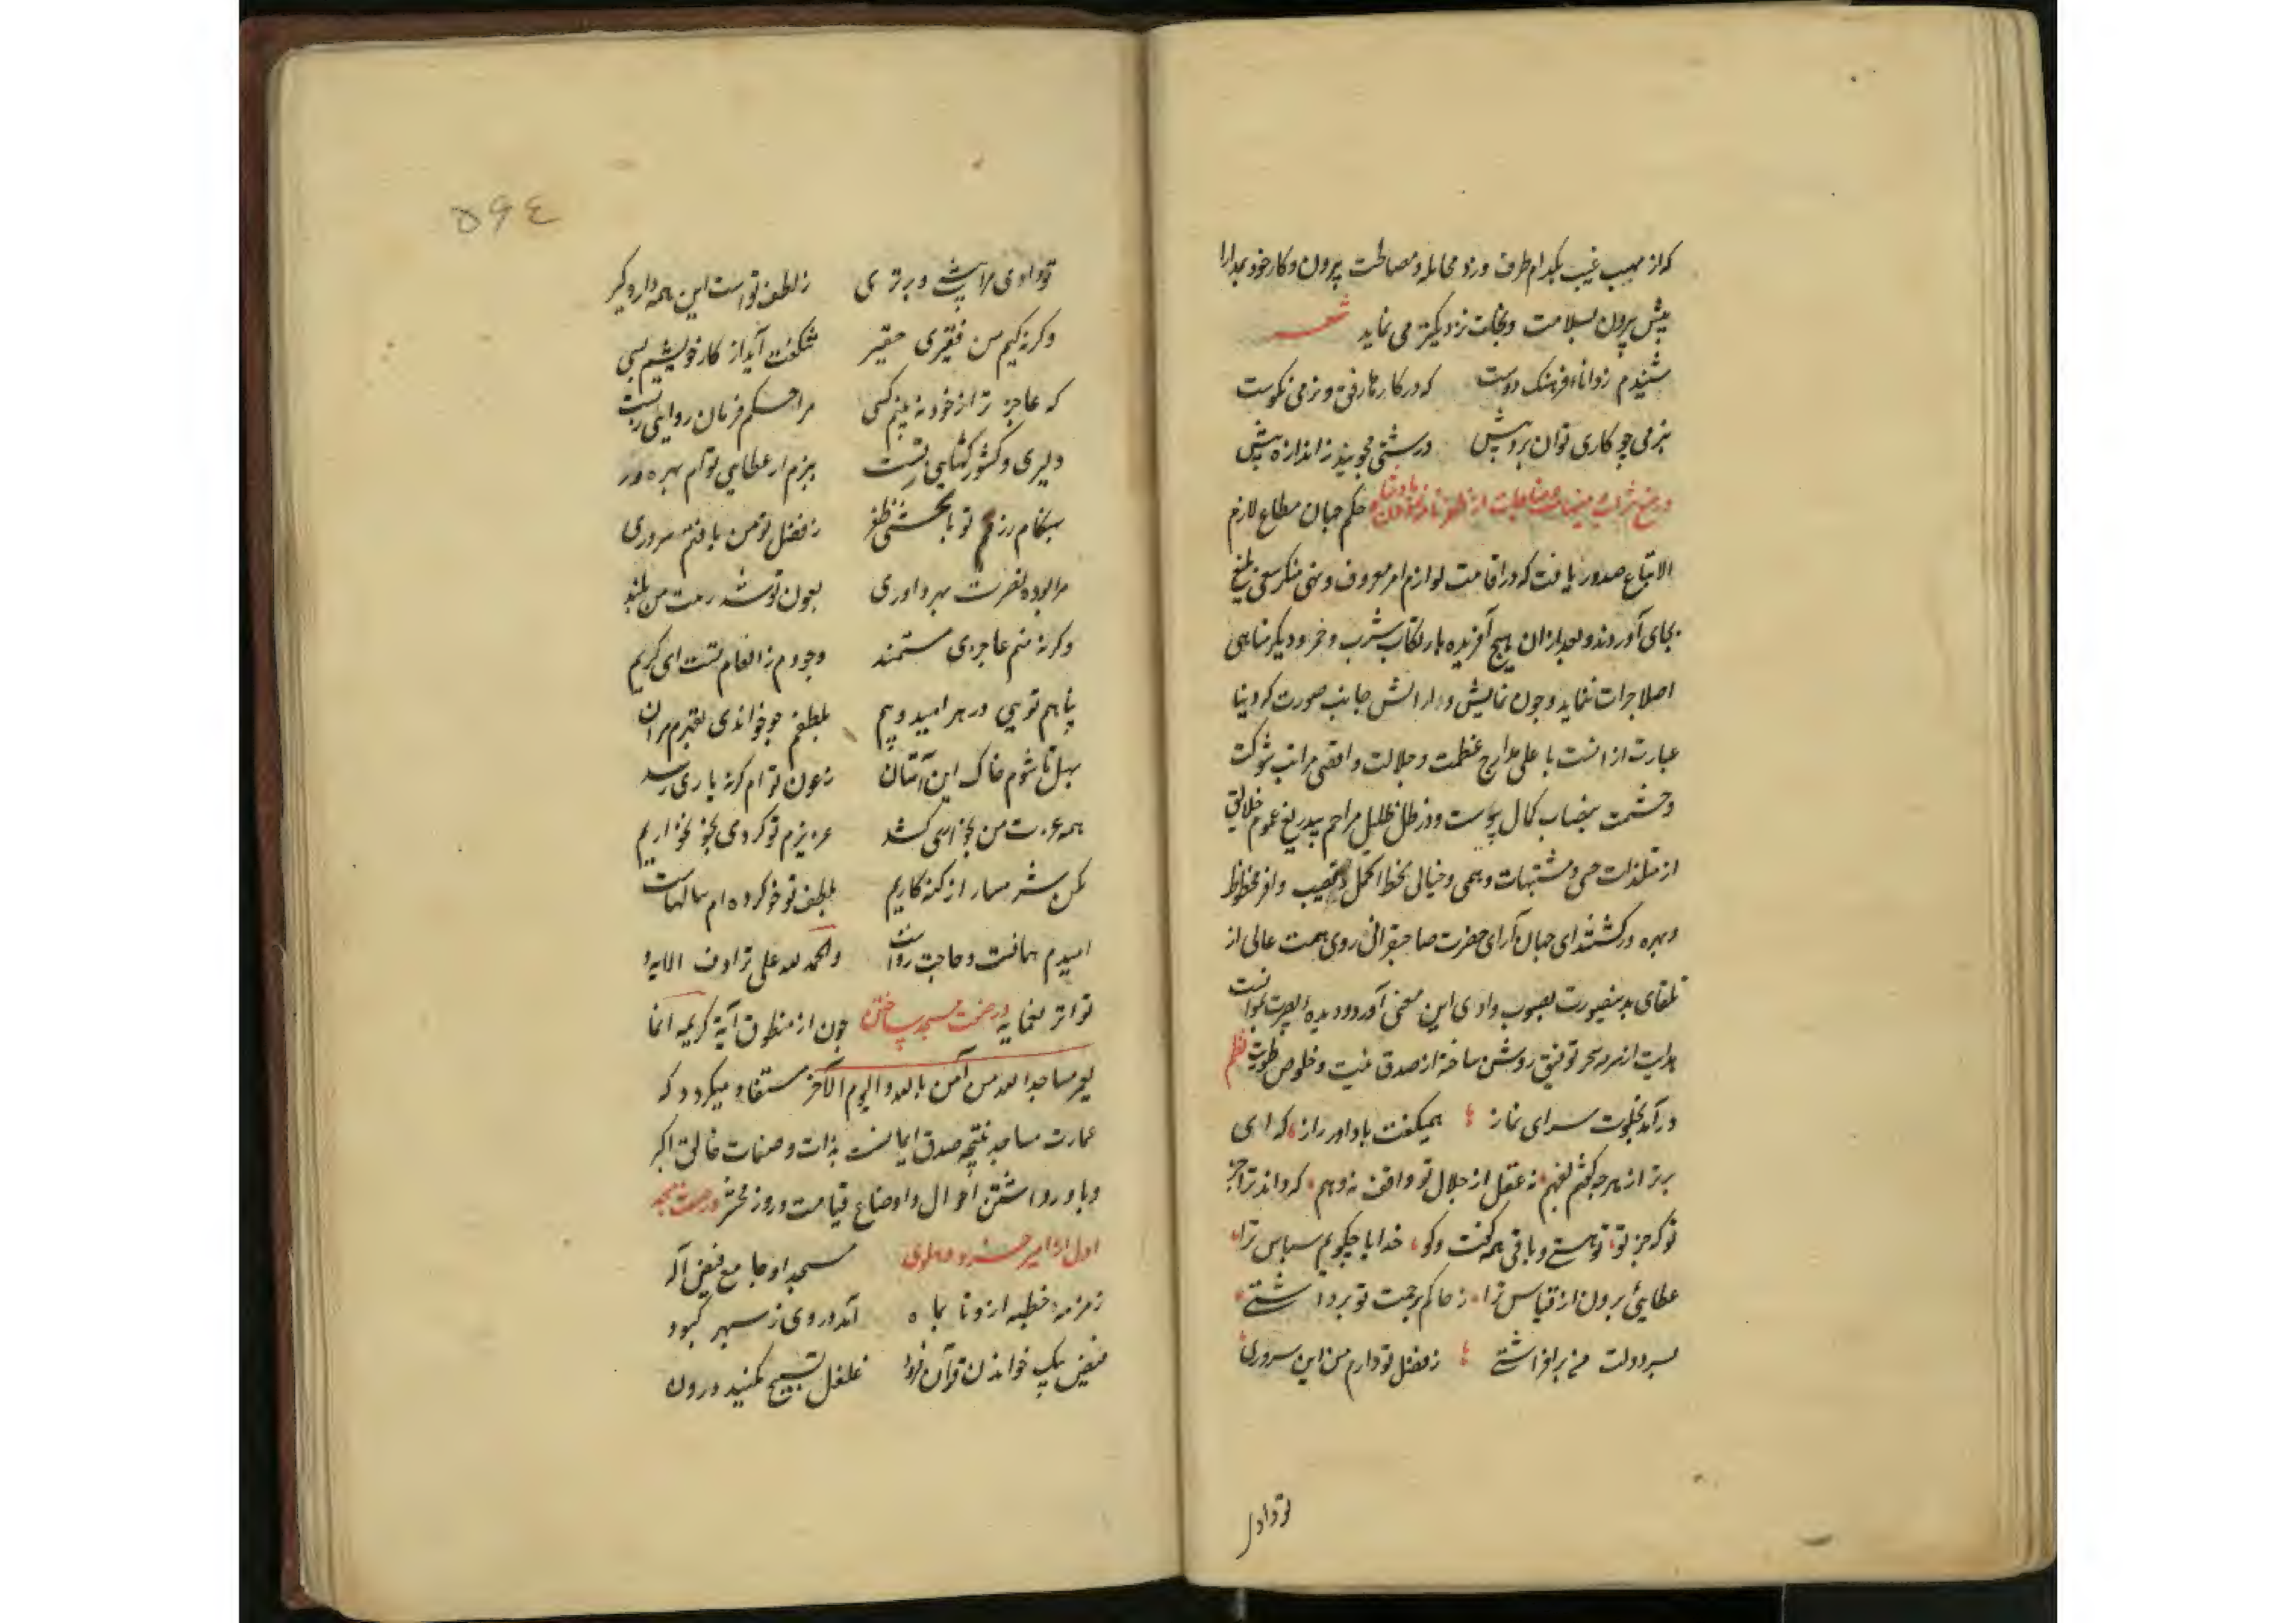 که از مهیب غیب بکدام طرف وزد مجامله و مصالحت پرون و کار خود بمدارا
پیش پرون بسلامت و نجات نزدیکتر می نماید شعر
شنیدم ز دانای فرهنک دوست که در کارها رفق و نرمی نکوست
بنرمی چو کاری توان برد پیش درشتی مجویید ز اندازه بیش
در منع شراب حکم جهان مطاع لازم
الاتباع صدور یافت که در اقامت لوازم امر معروف و نهی منکر سعی بلیغ
بجای آوردند و بعد از ان هیچ آفریده بارتکاب شرب و خمر و دیکر مناهی
اصلا جرات ننماید و چون نمایش و آرایش جانب صورت که دنیا
عبارت از انست با علی مدارج عظمت و جلالت و اقصی مراتب شوکت
و حشمت بنصاب کمال پیوست و در ظل ظلیل مراحم بیدریغ عموم خلایق
از متلذذات حسی و مشتهیات وهمی و خیالی بحظ اکمل و نصیب اوفر محظوظ
و بهره ور کشتند رای جهان آرای حضرت صاحبقرانی روی همت عالی از
تلقای بدینصورت بصوب وادی این معنی آورد و دیده بصیرت بموانست
هدایت از سرمه سحر توفیق روشن ساخته از صدق نیت و خلوص طویت نظم
درآمد بخلوت سرای نماز همیکفت با داور راز که ای
برتر از هرچه کنجد بفهم نه عقل از جلال تو واقف نه وهم که داند ترا جز
تو که جز تو تو هستی و باقی همه کفت و کو خدایا چکویم سپاس ترا
عطایی برون از قیاس ترا ز خاکم برحمت تو برداشتی
بسر دولت من برافراشتی ز فضل تو دارم من این سروری
تو دادی
۵۹٤
تو دادی مرا پیش و برتری ز لطف تو است این همه دار و کیر
وکرنه کیم من فقیری حقیر شکفت آید از کار خویشم بسی
که عاجز تر از خود نه بینم کسی مرا حکم فرمان روایی ز تست
دلیری و کشور کشایی ز تست ببزم از عطایی توام بهره ور
بهنکام رزم تو بخشی ظفر ز فضل تو من یافتم سروری
مرا بوده نصرت بهر داوری بعون تو شد رایت من بلند
وکرنه منم عاجزی مستمند وجودم ز انعام تست ای کریم
پناهم تویی در هر امید و بیم بلطفم چو خواندی بقهرم مران
بهل تا شوم خاک این آستان ز عون تو ام کرنه یاری رسد
همه عزت من بخواری کشد عزیزم تو کردی بجز بخواریم
مکن شرمسار از کنه کاریم بلطف تو خو کرده ام سالهاست
امیدم همانست و حاجت رواست والحمد لله علی ترادف الایه و
تواتر نعمایه در صفت مسجد ساختن چون از منطوق آیة کریمه انما
یعمر مساجد الله من آمن بالله والیوم الآخر مستفاد میکردد که
عمارت مساجد نتیجه صدق ایمانست بذات و صفات خالق اکبر
و باور داشتن احوال و اوضاع قیامت و روز محشر در صفت مسجد
اول از امیر خسرو دهلوی مسجد او جامع فیض آله
زمزمه خطبه او تا بماه آمده در وی ز سپهر کبود
فیض بیک خواندن قرآن فرود غلغل تسبیح کنبد درون